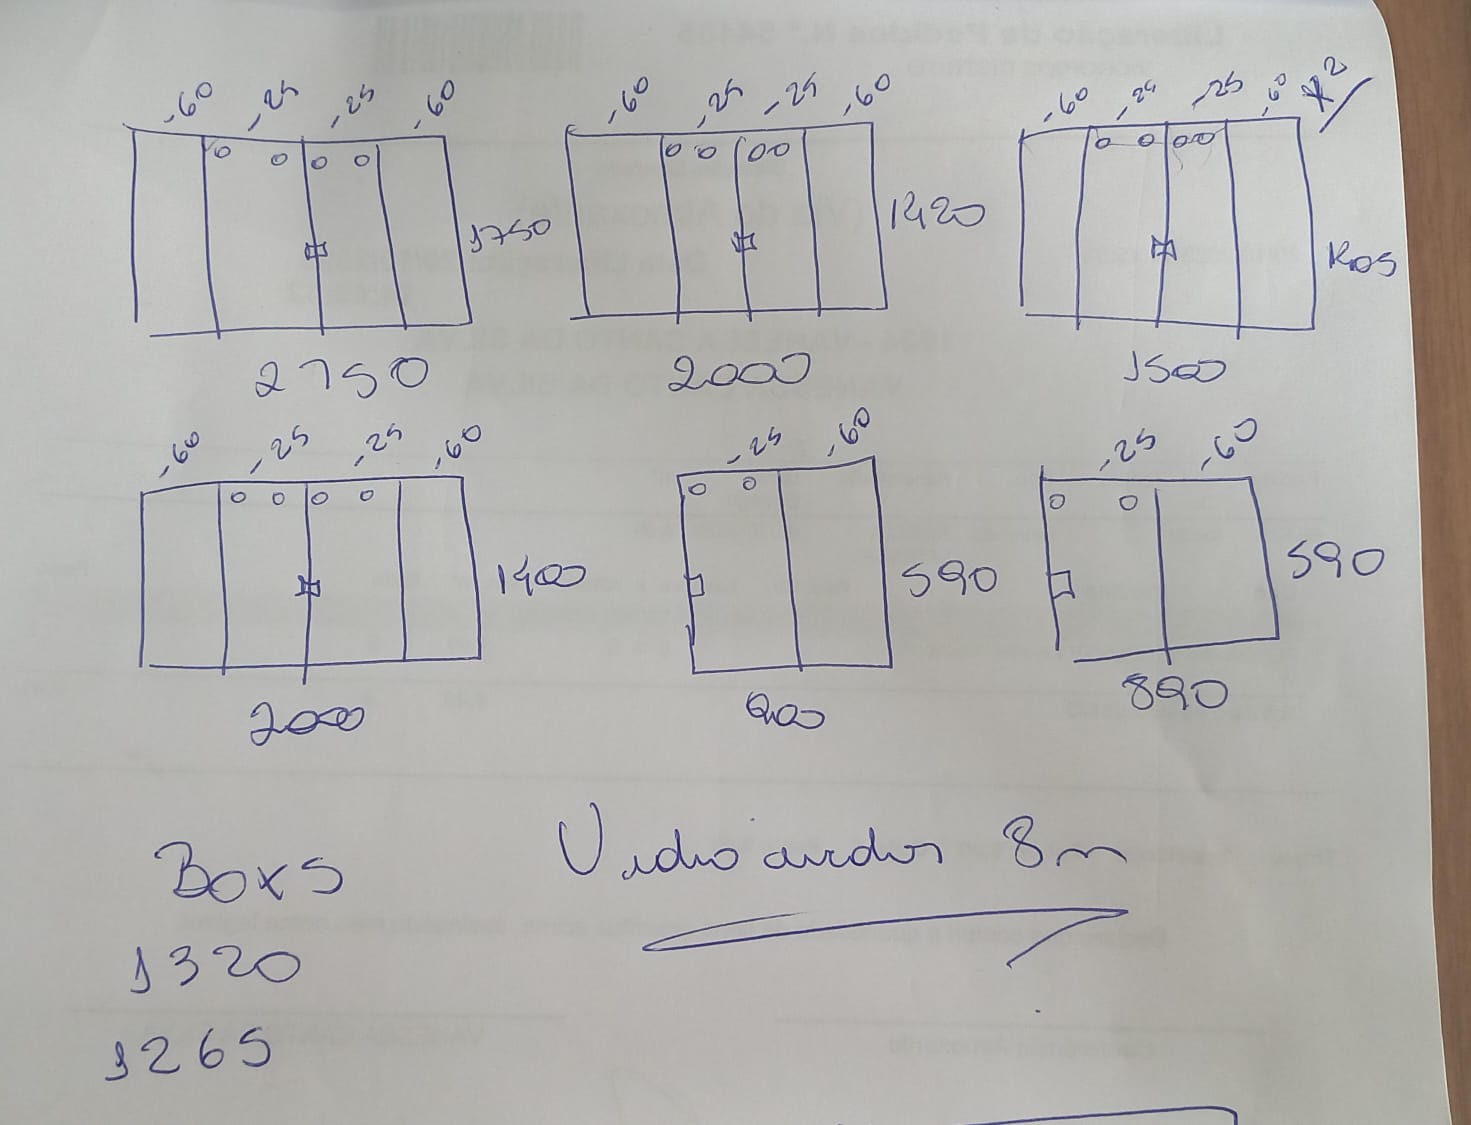 -60 -25 -25 -60
1750
2750
-60 -25 -25 -60
1420
2000
-60 -25 -25 -60 x2
1205
1500
-60 -25 -25 -60
1400
2000
-25 -60
590
900
-25 -60
590
890
Boxs
1320
1265
8m